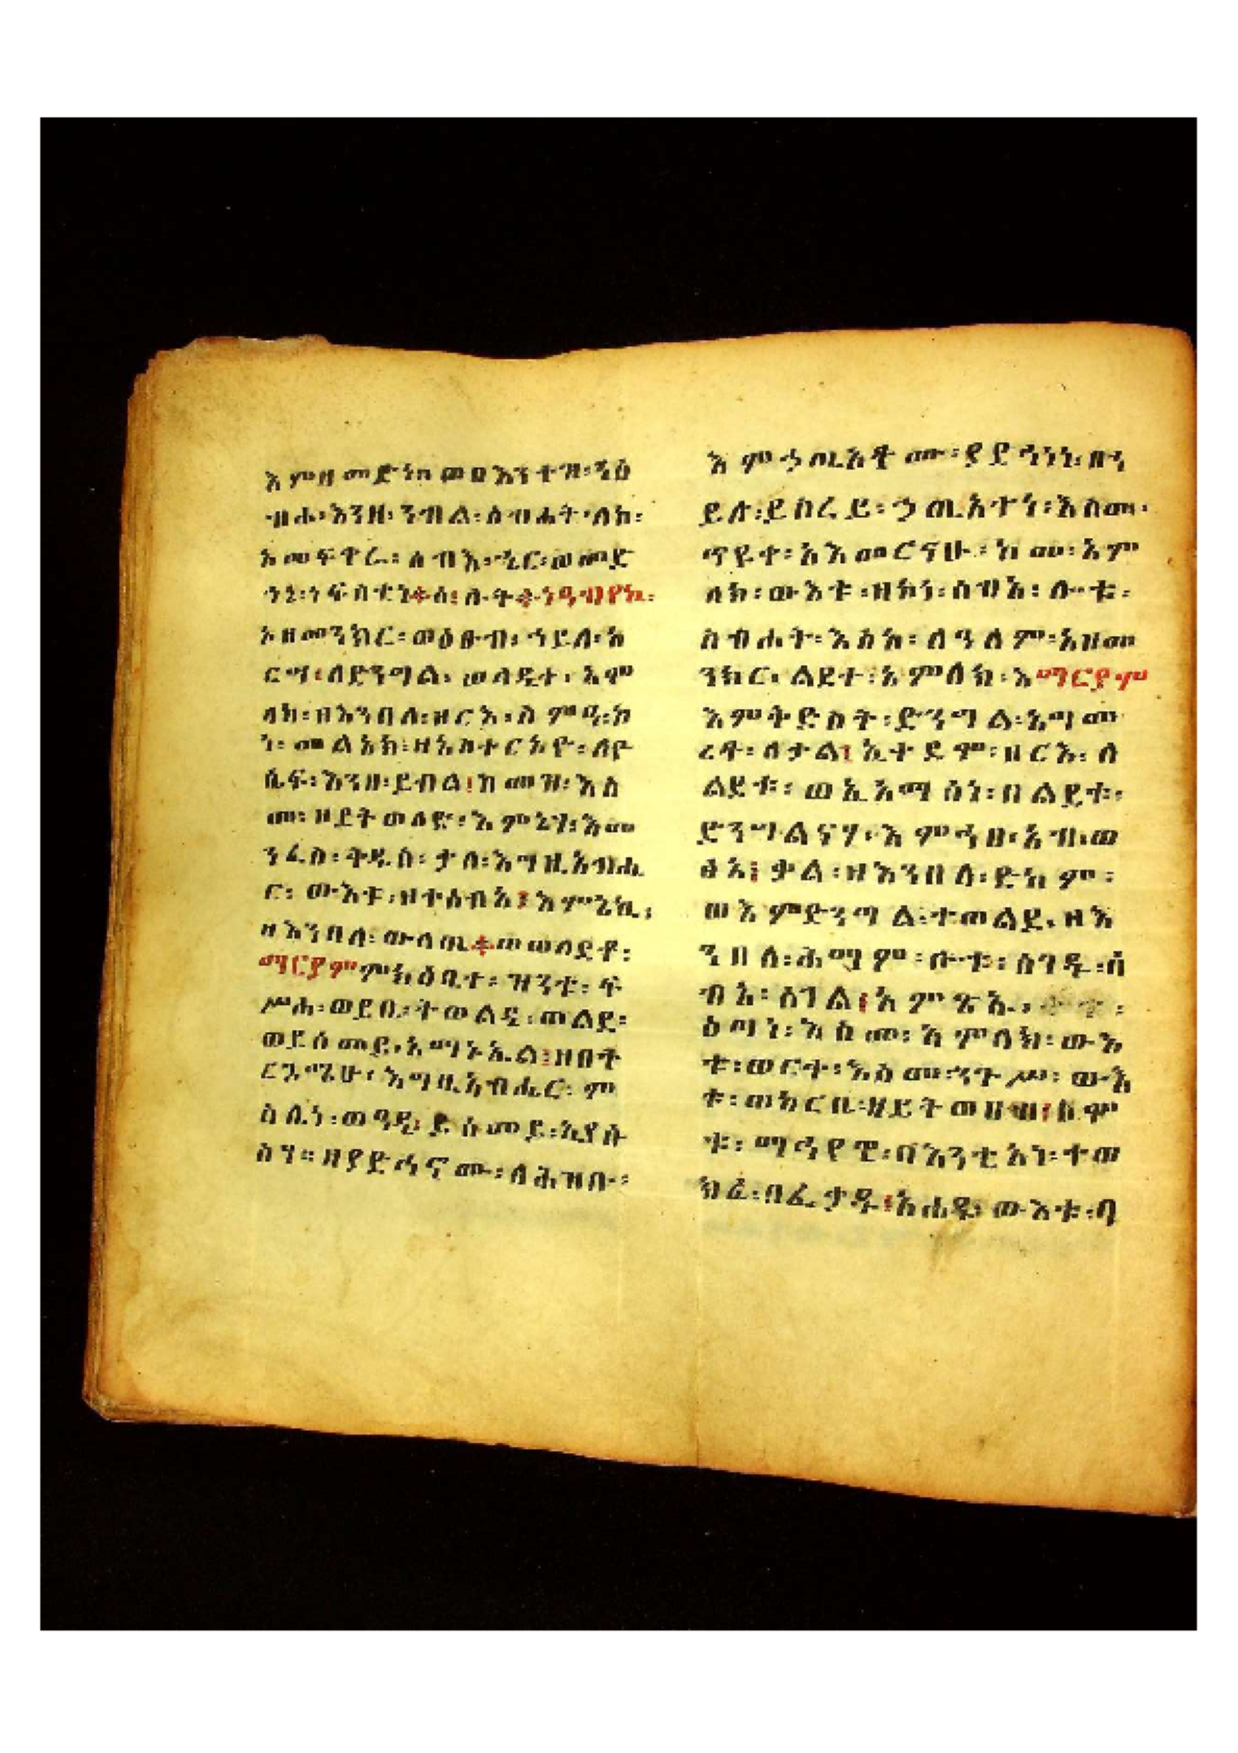 እምዘመድነ ወበእንተዝ፡ ንሴ
ብሖ፡ እንዘ፡ ንብል፡ ስብሐት፡ ለከ፡
አመፍቀሬ፡ ሰብእ፡ ኄር፡ ወመድ
ኀኔ፡ ነፍሳቲነ፡ ሰ፡ ሉ፡ ት፡ ነዓብየኪ፡
ኦዘመንክር፡ ወዕፁብ፡ ኀይለ፡ አ
ርሣ፡ ለድንግል፡ ወላዲተ፡ አም
ላክ፡ ዘእንበለ፡ ዘርእ፡ ስምዒ፡ ኮ
ነ፡ መልአክ፡ ዘአስተርአዮ፡ ለዮ
ሴፍ፡ እንዘ፡ ይብል፡ ከመዝ፡ እስ
መ፡ ዘይትወለድ፡ እምኔሃ፡ እመ
ንፈስ፡ ቅዱስ፡ ቃለ፡ እግዚአብሔ
ር፡ ውእቱ፡ ዘተሰብአ፡ እምኔኪ፡
ዘእንበለ፡ ውላጤ፡ ወወለደቶ፡
ማርያም ምክዕቢተ፡ ዝንቱ፡ ፍ
ሥሐ፡ ወይቤ፡ ትወልዲ፡ ወልደ፡
ወይሰመይ፡ አማኑኤል፡ ዘበት
ርጓሜሁ፡ እግዚአብሔር፡ ም
ስሌነ፡ ወዓዲ፡ ይሰመይ፡ ኢየሱ
ስሃ። ዘያድኅኖሙ፡ ለሕዝቡ፡
እምኃጢአቶሙ፡ ያድኅነነ፡ በኃ
ይሉ፡ ይስረይ፡ ኃጢአተነ፡ እስመ፡
ጥዩቀ፡ አእመርናሁ፡ ከመ፡ አም
ላክ፡ ውእቱ፡ ዘኮነ፡ ሰብአ፡ ሎቱ፡
ስብሐት፡ እስከ፡ ለዓለም፡ አዘመ
ንክር፡ ልደተ፡ አምላክ፡ እማርያም
እምቅድስት፡ ድንግል፡ አግመ
ረቶ፡ ለቃል፡ ኢቀደም፡ ዘርእ፡ ለ
ልደቱ፡ ወኢአማሰነ፡ በልደቱ፡
ድንግልናሃ፡ እምኀበ፡ አብ፡ ወ
ፅአ፡ ቃል፡ ዘእንበለ፡ ድካም፡
ወእምድንግል፡ ተወልደ፡ ዘእ
ንበለ፡ ሕማም፡ ሎቱ፡ ሰገዱ፡ ሰ
ብአ፡ ሰገል፡ አምጽኡ፡
ዕጣነ፡ እስመ፡ አምላክ፡ ውእ
ቱ፡ ወርቀ፡ እስመ፡ ንጉሥ፡ ውእ
ቱ፡ ወከርቤ፡ ዘይትወሀብ፡ ለሞ
ቱ፡ ማኅየዊ፡ በእንቲአነ፡ ተወ
ክፈ፡ በፈቃዱ፡ አሐዱ፡ ውእቱ፡ ባ